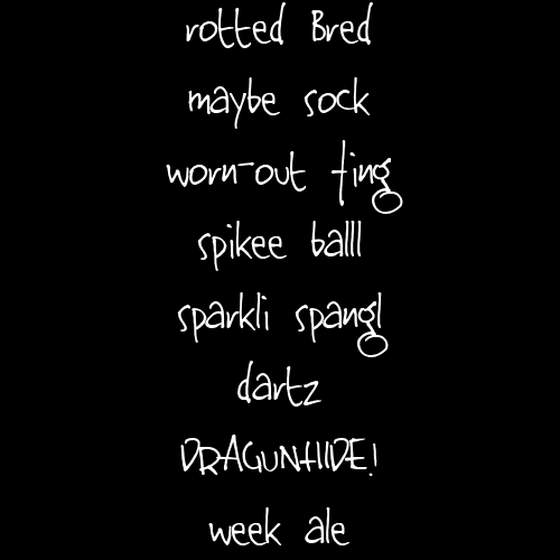 rotted Bred
maybe sock
worn-out ting
spikee balll
sparkli spangl
dartz
DRAGUNHIDE!
week ale